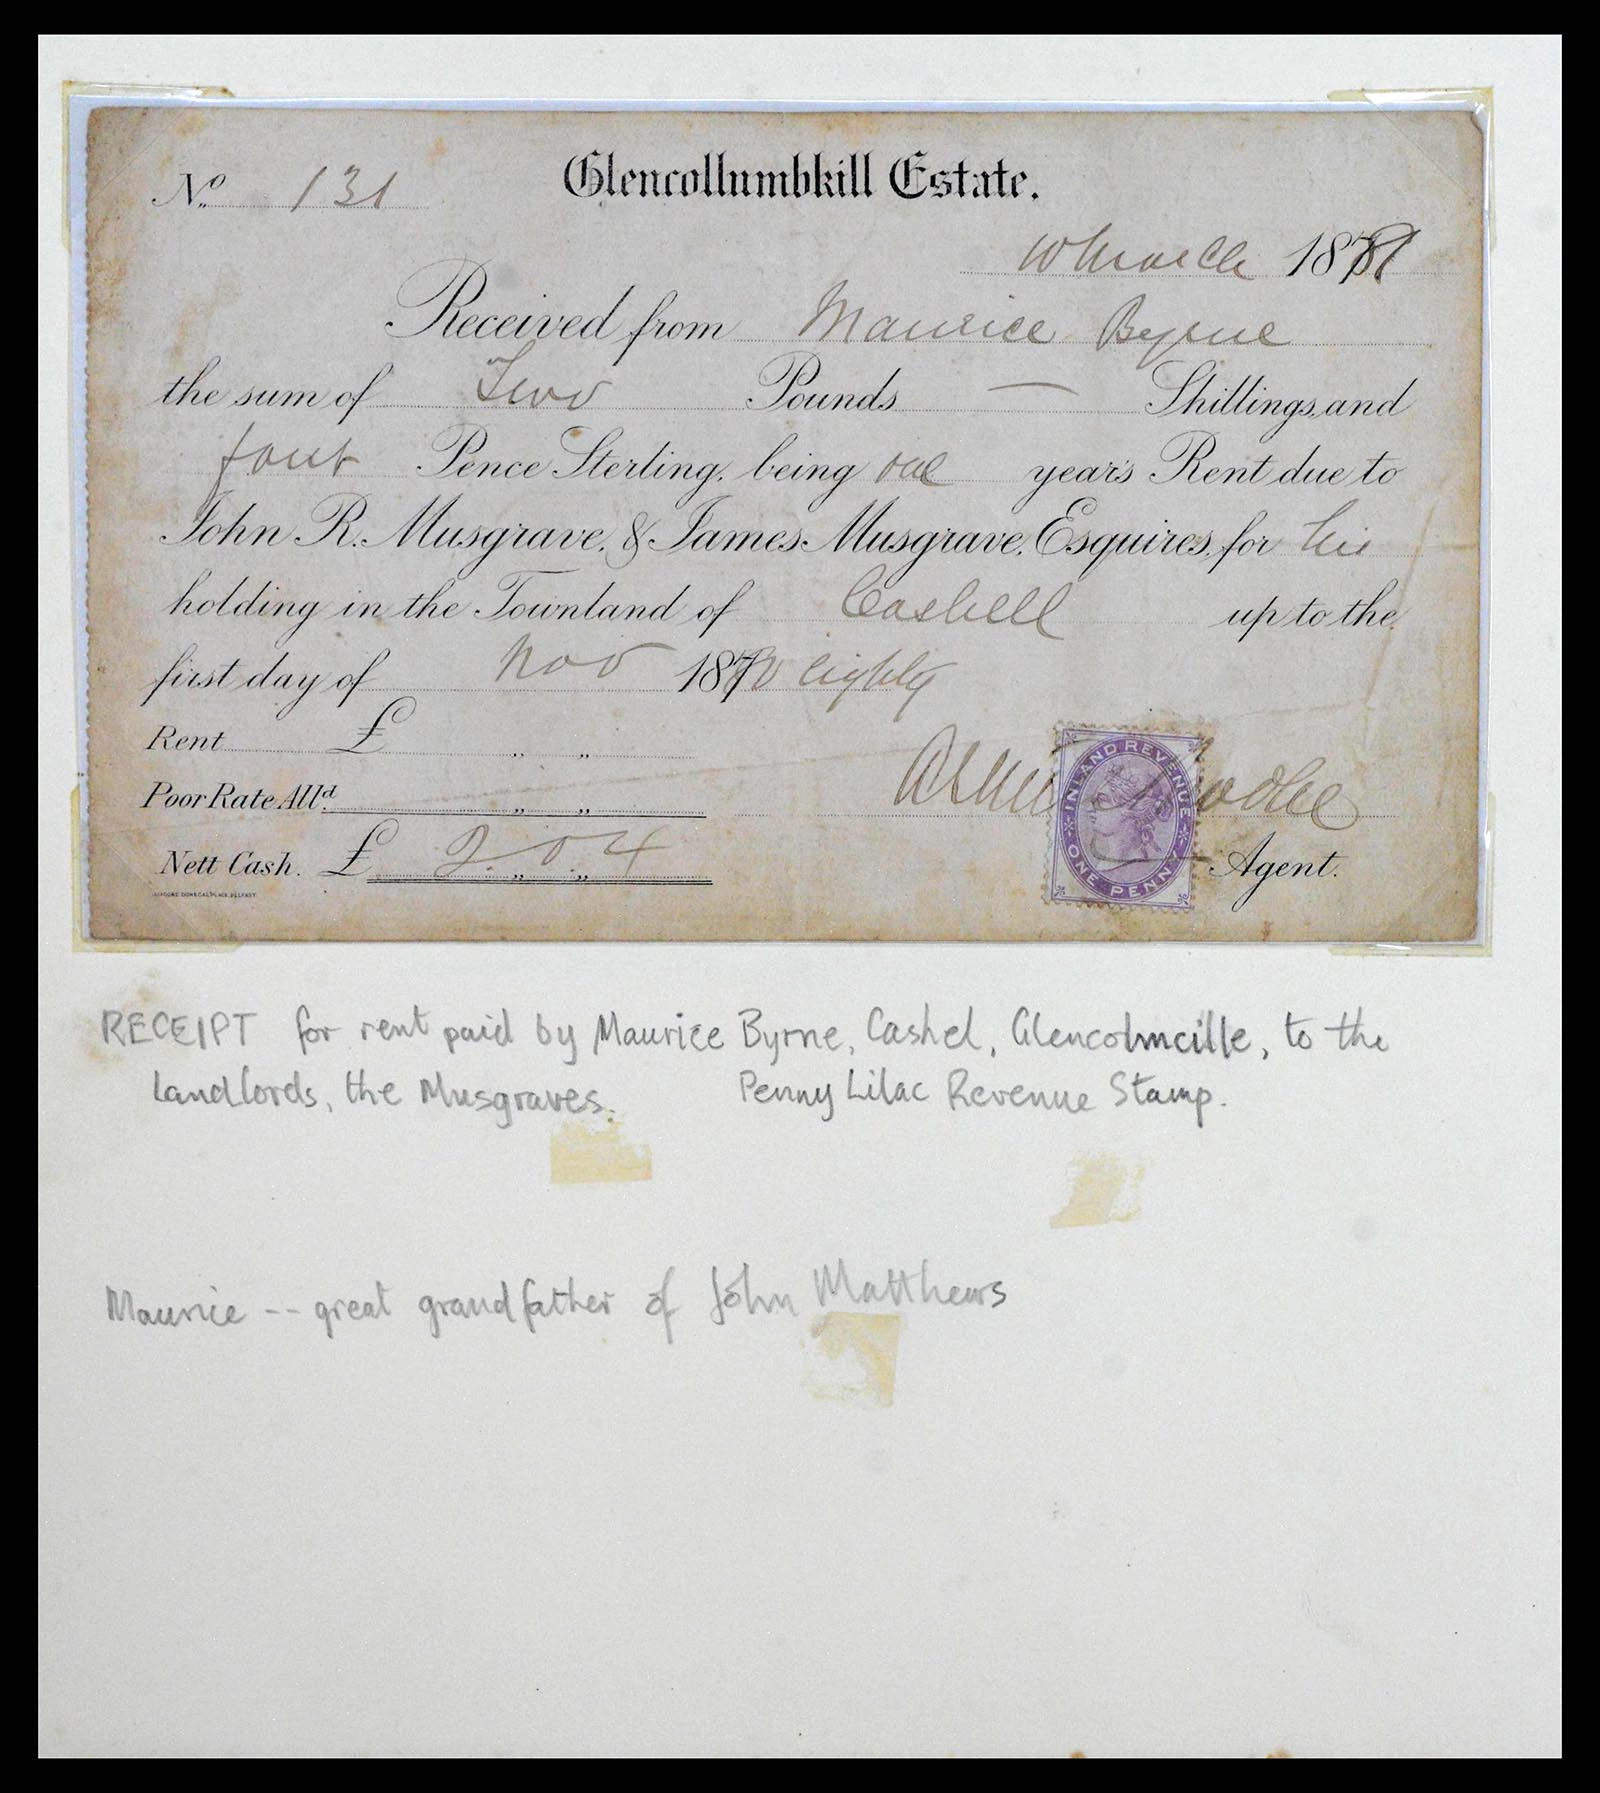 Glencollumbkill Estate.
No. 131
10 March 1881
Received from Maurice Byrne
the sum of Two Pounds — Shillings, and
four Pence Sterling, being one year's Rent due to
John R. Musgrave, & James Musgrave, Esquires, for his
holding in the Townland of Cashell up to the
first day of Nov 1880 eighty
Rent £ " "
Poor Rate All.d " "
Nett Cash. £ 2 " 0 " 4
Agent.
INLAND REVENUE
ONE PENNY
RECEIPT for rent paid by Maurice Byrne, Cashel, Glencolmcille, to the
landlords, the Musgraves. Penny Lilac Revenue Stamp.
Maurice -- great grandfather of John Matthews